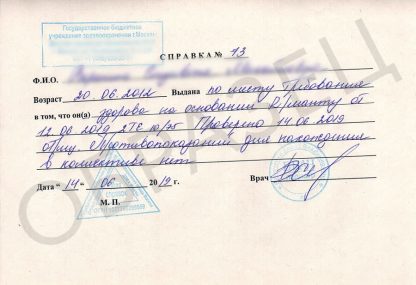 Государственное бюджетное
учреждение здравоохранения г. Москвы
СПРАВКА № 13
Ф.И.О.
Возраст 20.06.2012 Выдана по месту требования
в том, что он(а) здорова на основании Д/манту от
12.06 2019 2ТЕ Проверено 14.06 2019
Противопоказаний для нахождения
в коллективе нет
Дата "14" 06 2019 г.
Врач
М. П.
ОБРАЗЕЦ